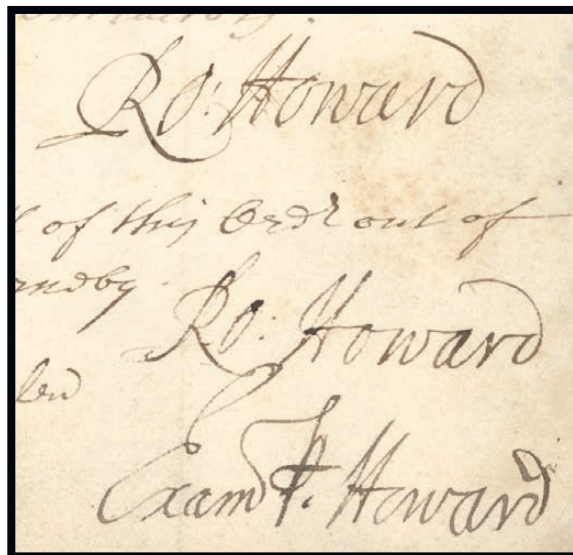 Ro: Howard
of this Ordr out of
Ro: Howard
Exam P. Howard